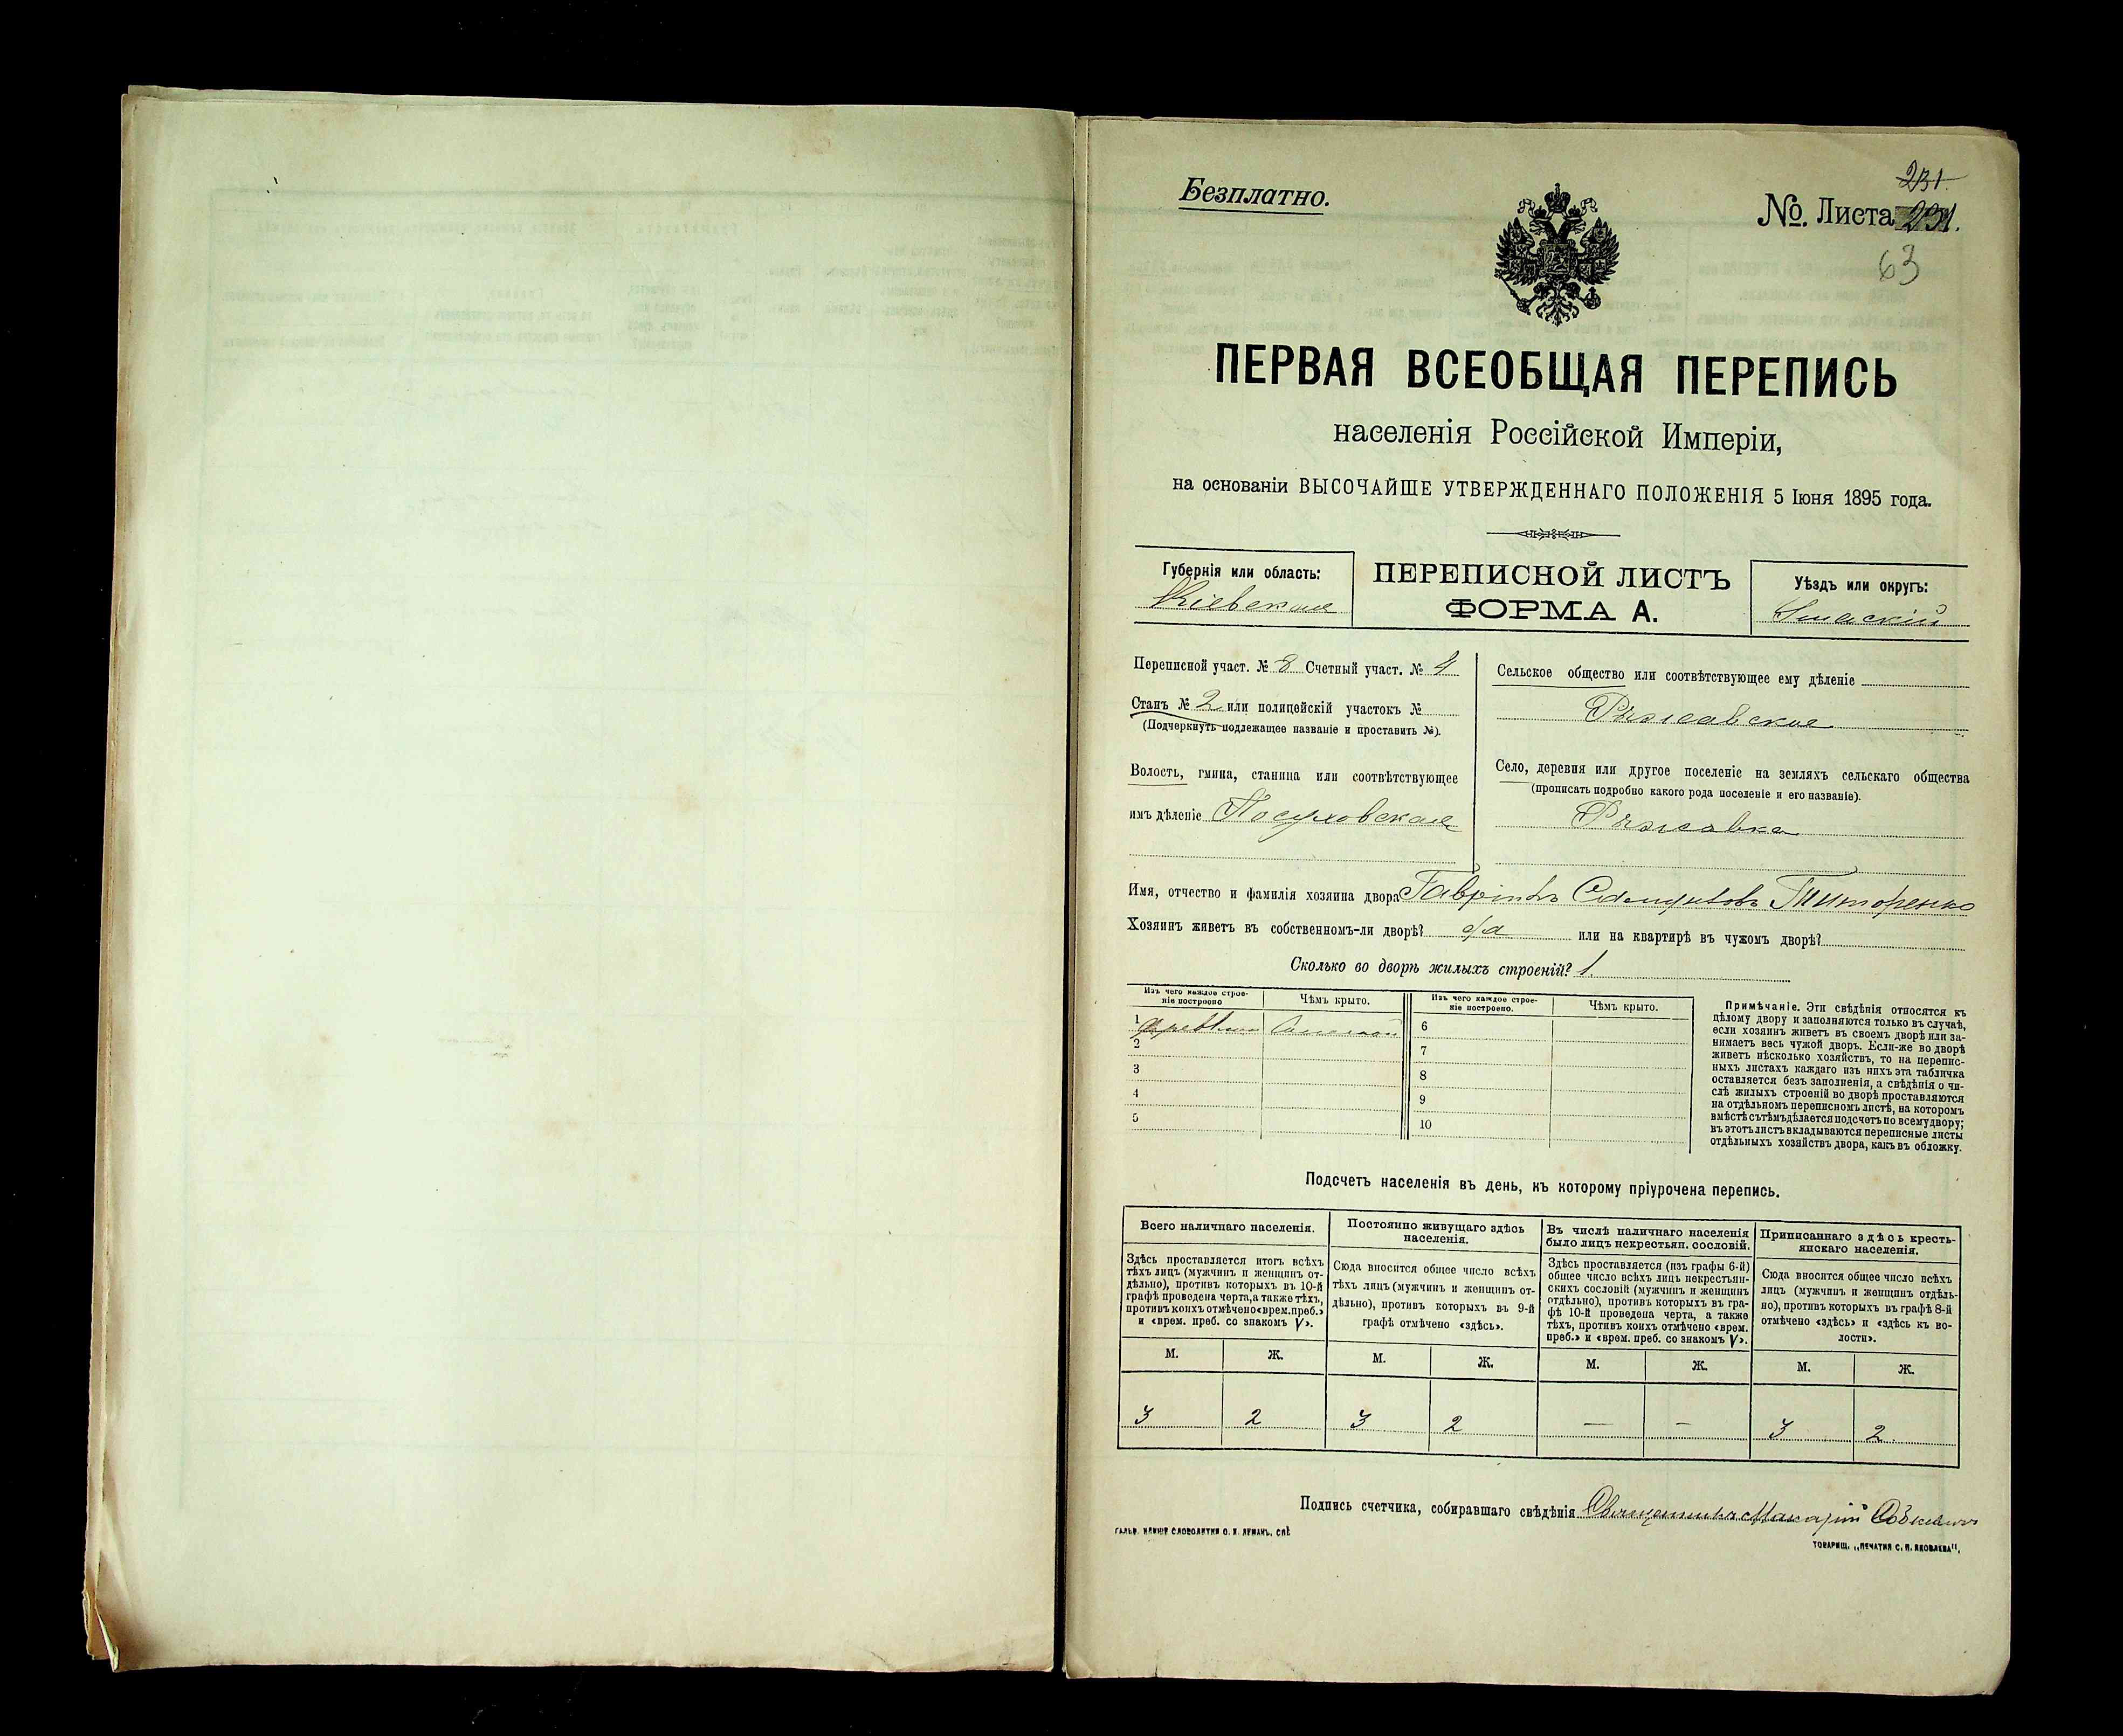 Безплатно.
231.
№. Листа 231.
63
ПЕРВАЯ ВСЕОБЩАЯ ПЕРЕПИСЬ
населенія Россійской Имперіи,
на основаніи ВЫСОЧАЙШЕ УТВЕРЖДЕННАГО ПОЛОЖЕНІЯ 5 Іюня 1895 года.
Губернія или область:
Кіевская
ПЕРЕПИСНОЙ ЛИСТЪ
ФОРМА А.
Уѣздъ или округъ:
Переписной участ. № 8 Счетный участ. № 4
Станъ № 2 или полицейскій участокъ №
(Подчеркнуть подлежащее названіе и проставить №).
Волость, гмина, станица или соотвѣтствующее
имъ дѣленіе Посуховская
Сельское общество или соотвѣтствующее ему дѣленіе
Рыжавское
Село, деревня или другое поселеніе на земляхъ сельскаго общества
(прописать подробно какого рода поселеніе и его названіе).
Рыжавка
Имя, отчество и фамилія хозяина двора Гавріилъ Самуиловъ Тимофенко
Хозяинъ живетъ въ собственномъ-ли дворѣ? да или на квартирѣ въ чужомъ дворѣ?
Сколько во дворѣ жилыхъ строеній? 1.
Изъ чего каждое строе-
ніе построено
Чѣмъ крыто.
Изъ чего каждое строе-
ніе построено.
Чѣмъ крыто.
1
2
3
4
5
6
7
8
9
10
Примѣчаніе. Эти свѣдѣнія относятся къ
цѣлому двору и заполняются только въ случаѣ,
если хозяинъ живетъ въ своемъ дворѣ или за-
нимаетъ весь чужой дворъ. Если-же во дворѣ
живетъ нѣсколько хозяйствъ, то на перепис-
ныхъ листахъ каждаго изъ нихъ эта табличка
оставляется безъ заполненія, а свѣдѣнія о чи-
слѣ жилыхъ строеній во дворѣ проставляются
на отдѣльномъ переписномъ листѣ, на которомъ
вмѣстѣ съ тѣмъ дѣлается подсчетъ по всему двору;
въ этотъ листъ вкладываются переписные листы
отдѣльныхъ хозяйствъ двора, какъ въ обложку.
Подсчетъ населенія въ день, къ которому пріурочена перепись.
Всего наличнаго населенія.
Здѣсь проставляется итогъ всѣхъ
тѣхъ лицъ (мужчинъ и женщинъ от-
дѣльно), противъ которыхъ въ 10-й
графѣ проведена черта, а также тѣхъ,
противъ коихъ отмѣчено «врем. преб.»
и «врем. преб. со знакомъ V».
Постоянно живущаго здѣсь
населенія.
Сюда вносится общее число всѣхъ
тѣхъ лицъ (мужчинъ и женщинъ от-
дѣльно), противъ которыхъ въ 9-й
графѣ отмѣчено «здѣсь».
Въ числѣ наличнаго населенія
было лицъ некрестьян. сословій.
Здѣсь проставляется (изъ графы 6-й)
общее число всѣхъ лицъ некрестьян-
скихъ сословій (мужчинъ и женщинъ
отдѣльно), противъ которыхъ въ гра-
фѣ 10-й проведена черта, а также
тѣхъ, противъ коихъ отмѣчено «врем.
преб.» и «врем. преб. со знакомъ V».
Приписаннаго здѣсь кресть-
янскаго населенія.
Сюда вносится общее число всѣхъ
лицъ (мужчинъ и женщинъ отдѣль-
но), противъ которыхъ въ графѣ 8-й
отмѣчено «здѣсь» и «здѣсь къ во-
лости».
М. Ж. М. Ж. М. Ж. М. Ж.
3 2 3 2 — — 3 2
Подпись счетчика, собиравшаго свѣдѣнія Священникъ Макарій
ТОВАРИЩ. „ПЕЧАТНЯ С. П. ЯКОВЛЕВА",